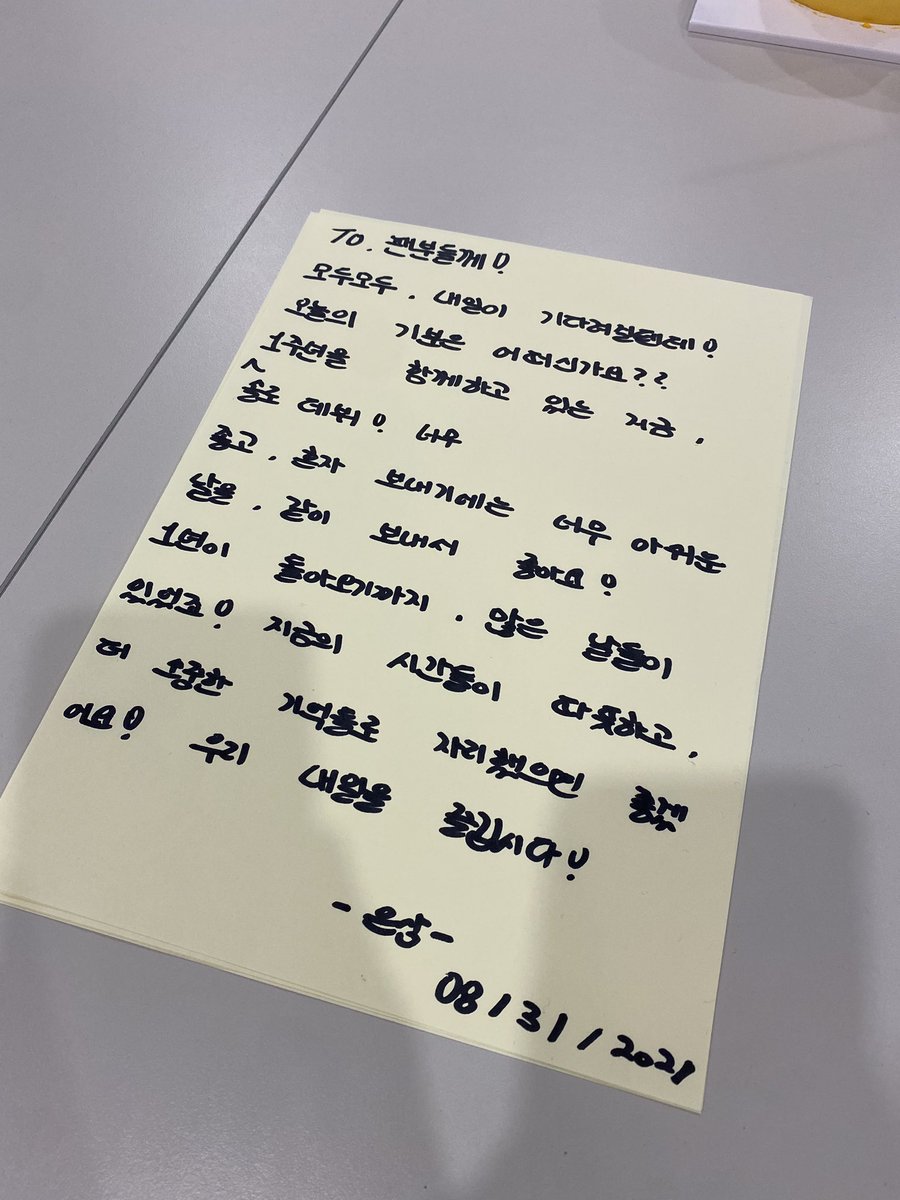 TO. 팬분들께!
모두모두, 내일이 기다려질텐데!
오늘의 기분은 어떠신가요??
1주년을 함께하고 있는 지금,
솔로 데뷔! 너무
좋고, 혼자 보내기에는 너무 아쉬운
날을, 같이 보내서 좋아요!
1년이 돌아오기까지, 많은 날들이
있었죠! 지금의 시간들이 따뜻하고,
더 소중한 기억들로 자리했으면 좋겠
어요! 우리 내일을 즐깁시다!
- 은상 -
08/31/2021